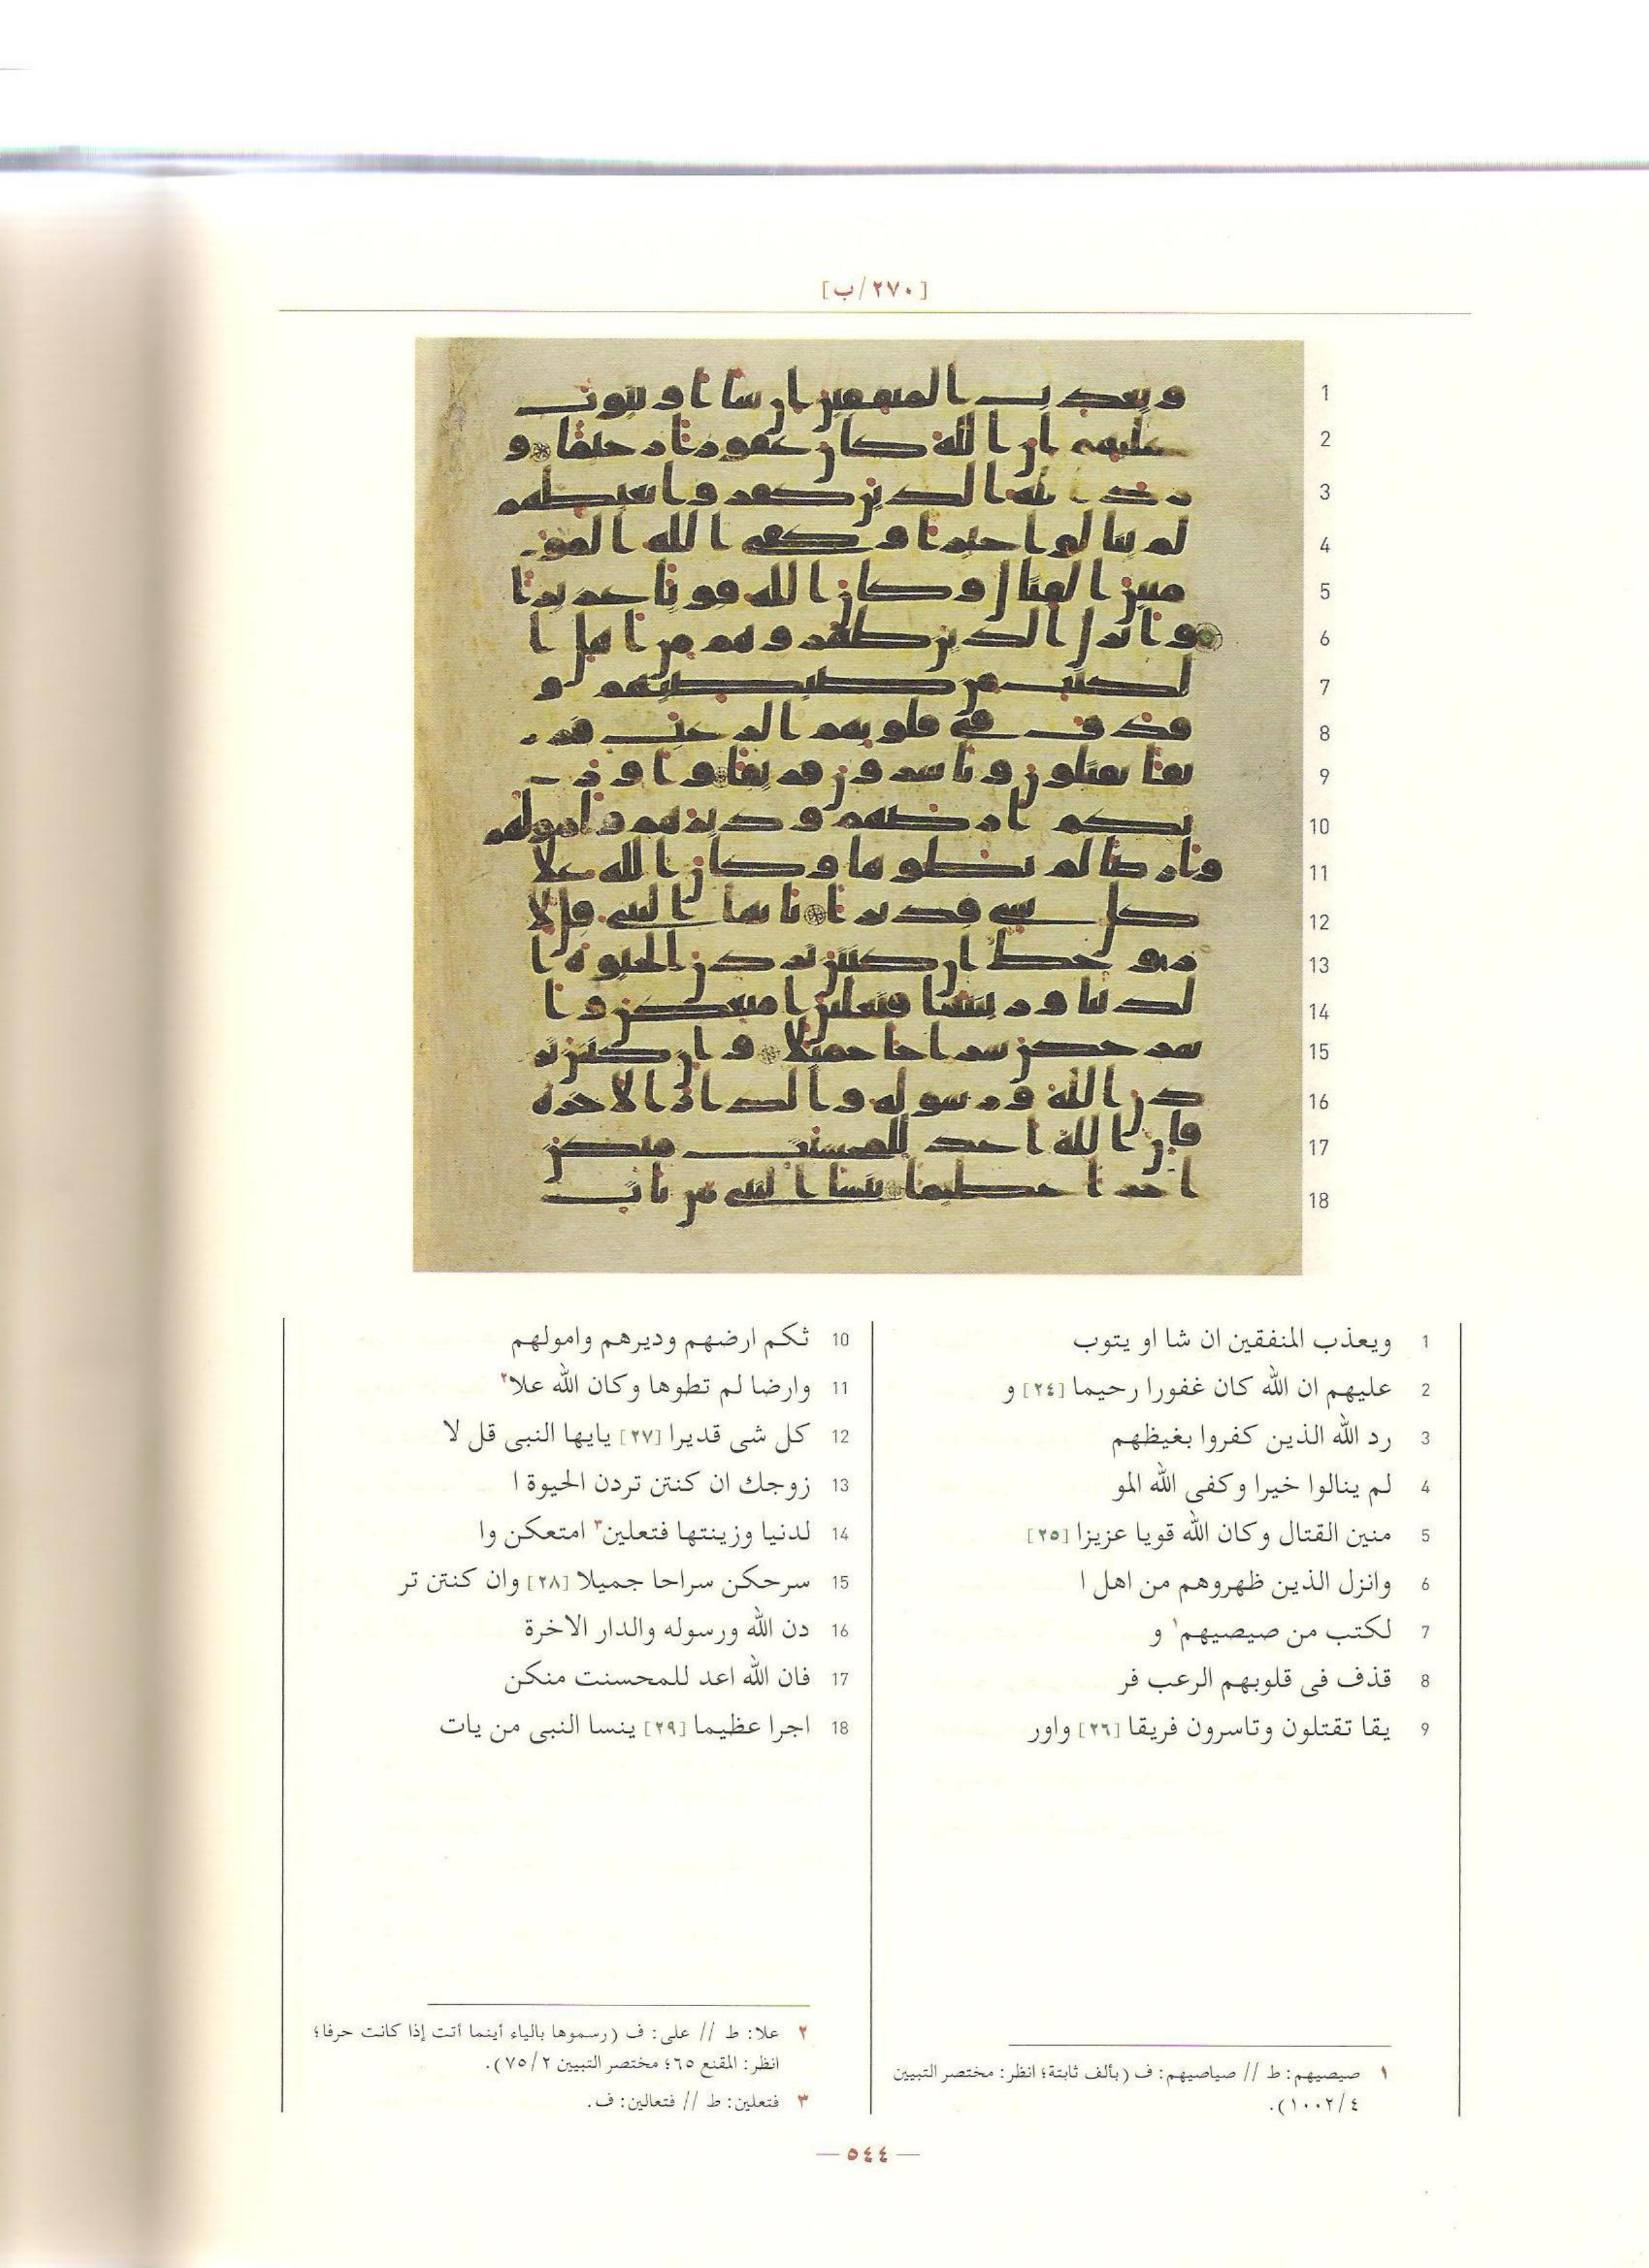 [٢٧٠/ب]
1 ويعذب المنفقين ان شا او يتوب
2 عليهم ان الله كان غفورا رحيما [٢٤] و
3 رد الله الذين كفروا بغيظهم
4 لم ينالوا خيرا وكفى الله المو
5 منين القتال وكان الله قويا عزيزا [٢٥]
6 وانزل الذين ظهروهم من اهل ا
7 لكتب من صيصيهم١ و
8 قذف فى قلوبهم الرعب فر
9 يقا تقتلون وتاسرون فريقا [٢٦] واور
10 ثكم ارضهم وديرهم وامولهم
11 وارضا لم تطوها وكان الله علا٢
12 كل شى قديرا [٢٧] يايها النبى قل لا
13 زوجك ان كنتن تردن الحيوة ا
14 لدنيا وزينتها فتعلين٣ امتعكن وا
15 سرحكن سراحا جميلا [٢٨] وان كنتن تر
16 دن الله ورسوله والدار الاخرة
17 فان الله اعد للمحسنت منكن
18 اجرا عظيما [٢٩] ينسا النبى من يات
١ صيصيهم: ط // صياصيهم: ف (بألف ثابتة؛ انظر: مختصر التبيين
٤/١٠٠٢).
٢ علا: ط // على: ف (رسموها بالياء أينما أتت إذا كانت حرفا؛
انظر: المقنع ٦٥؛ مختصر التبيين ٧٥/٢).
٣ فتعلين: ط // فتعالين: ف.
— ٥٤٤ —